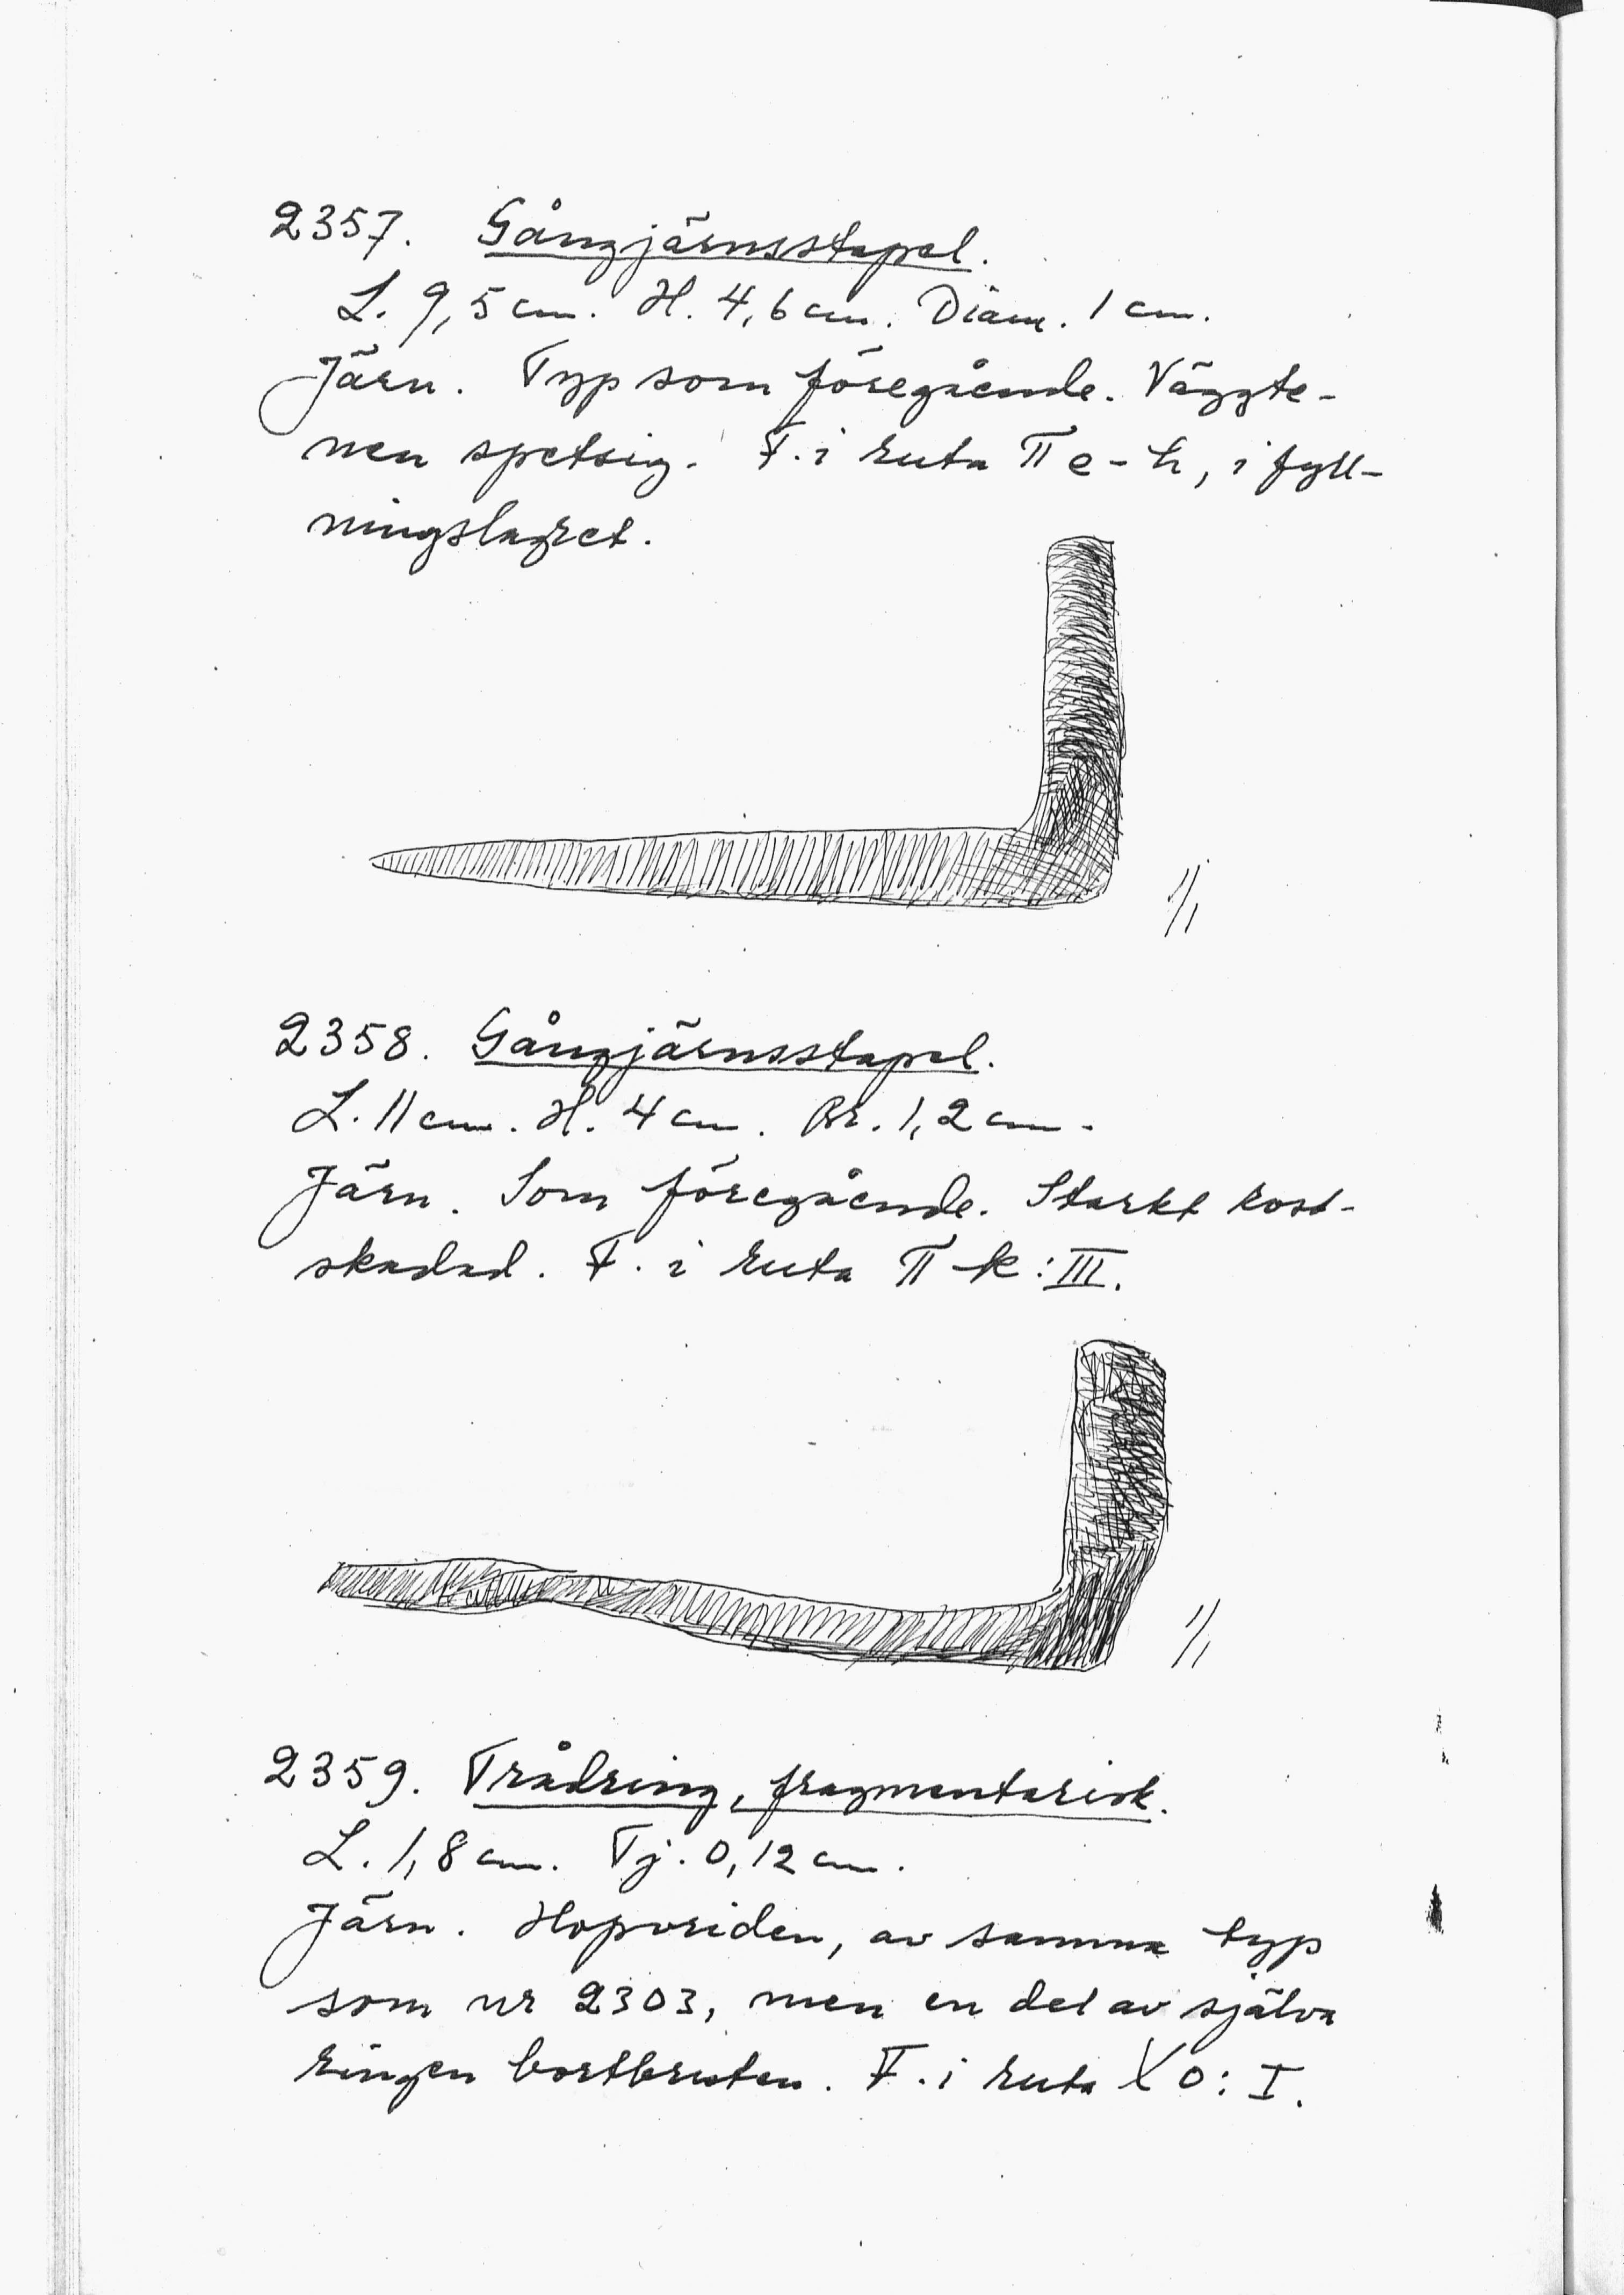 2357. Gångjärnsstapel.
L. 9,5 cm. H. 4,6 cm. Diam. 1 cm.
Järn. Typ som föregående. Väggte-
nen spetsig. F. i ruta II e-h, i fyll-
ningslagret.
1/1
2358. Gångjärnsstapel.
L. 11 cm. H. 4 cm. Br. 1,2 cm.
Järn. Som föregående. Starkt rost-
skadad. F. i ruta II k:III.
1/1
2359. Trådring, fragmentarisk.
L. 1,8 cm. Tj. 0,12 cm.
Järn. Hopvriden, av samma typ
som nr 2303, men en del av själva
ringen bortbruten. F. i ruta X o: I.